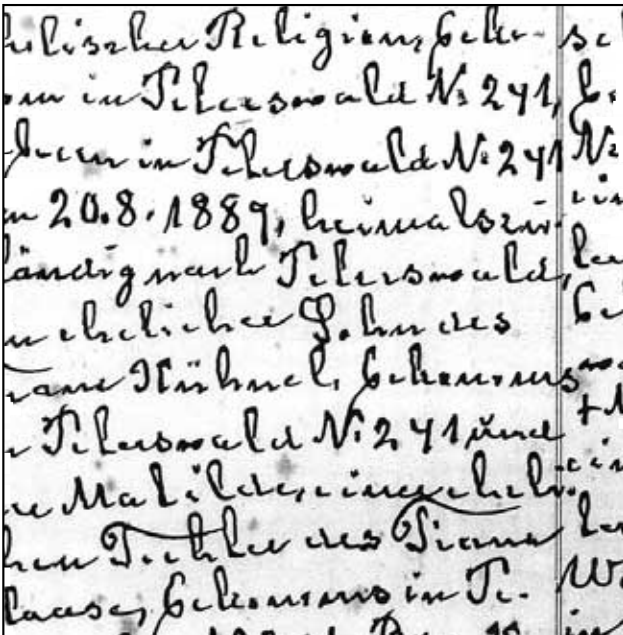 holischer Religion, Oeko-
nom in Peterswald N: 241,
boren in Peterswald N: 241
m 20.8.1889, heimatszu-
ständig nach Peterswald,
ehelicher Sohn des
Franz Kühnel, Oekonoms
n Peterswald N: 241 und
Mathilde, einer eheli-
chen Tochter des Franz
Haase, Oekonoms in Pe-